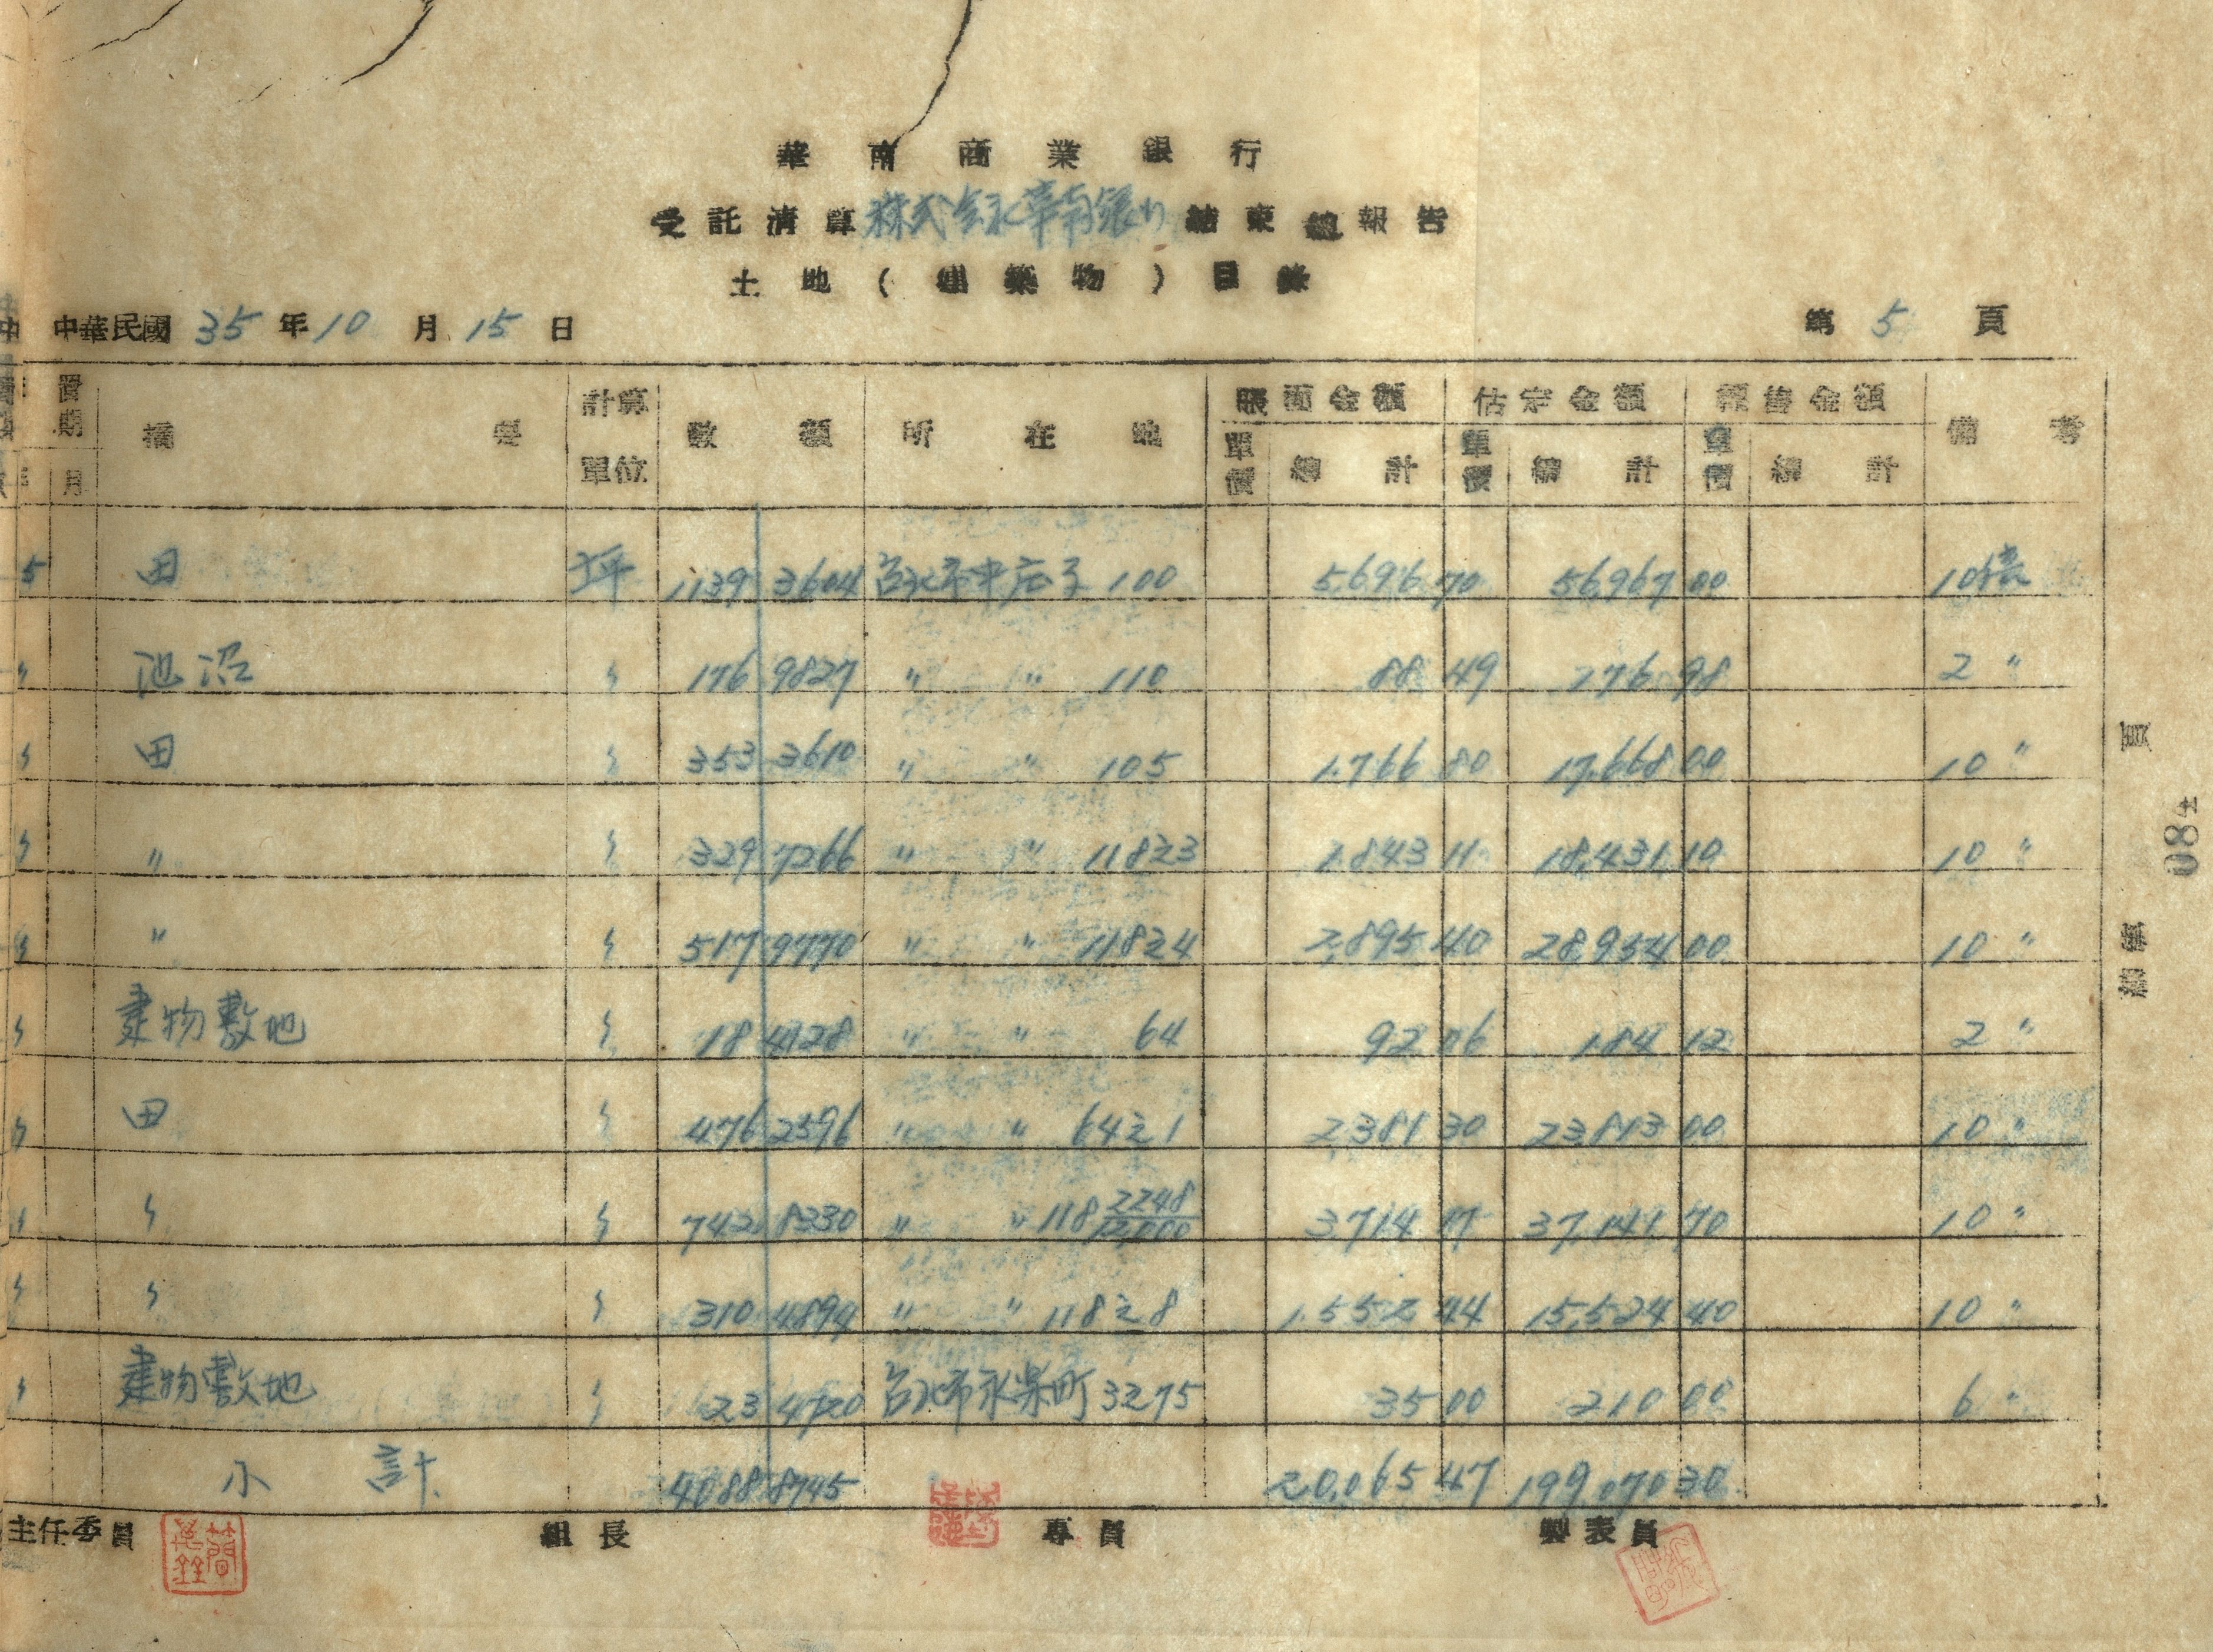 華南商業銀行
受託清算株式会社華南銀行結束總報告
土地(建築物)目錄
中華民國 35 年 10 月 15 日 第 5 頁
置期 摘要 計算單位 數額 所在地 賬面金額 估定金額 預售金額 備考
年 月 單價 總計 單價 總計 單價 總計
5 田 坪 1139 3604 台北市中庄子 100 5,696 70 56,967 00 10倍
〃 池沼 〃 176 9827 〃 〃 110 88 49 176 98 2 〃
〃 田 〃 353 3610 〃 〃 105 1,766 80 17,668 00 10 〃
〃 〃 〃 329 7266 〃 〃 118之3 1,843 11 18,431 10 10 〃
〃 〃 〃 517 9770 〃 〃 118之4 2,895 40 28,954 00 10 〃
〃 建物敷地 〃 18 4128 〃 〃 64 92 06 184 12 2 〃
〃 田 〃 476 2596 〃 〃 64之1 2,381 30 23,813 00 10 〃
〃 〃 〃 742 8330 〃 〃 118 2248/12,000 3,714 17 37,141 70 10 〃
〃 〃 〃 310 4894 〃 〃 118之8 1,552 44 15,524 40 10 〃
〃 建物敷地 〃 23 4720 台北市永楽町 3之75 35 00 210 00 6 〃
小計 4088 8745 20,065 47 199,070 30
主任委員 組長 專員 製表員
總號 頁
084